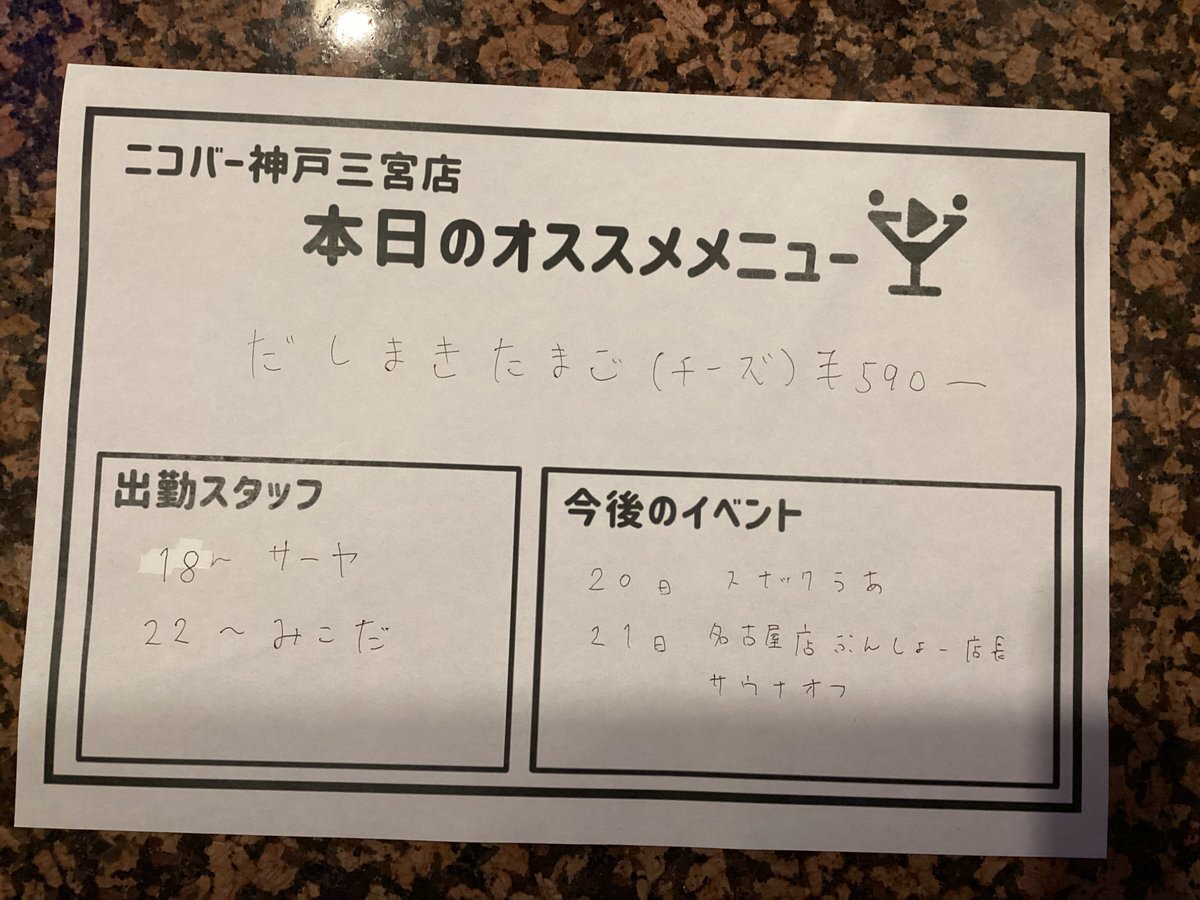 ニコバー神戸三宮店
本日のオススメメニュー
だしまきたまご(チーズ)¥590ー
出勤スタッフ
18~ サーヤ
22~みこだ
今後のイベント
20日 スナックうあ
21日 名古屋店ぶんしょー店長
サウナオフ